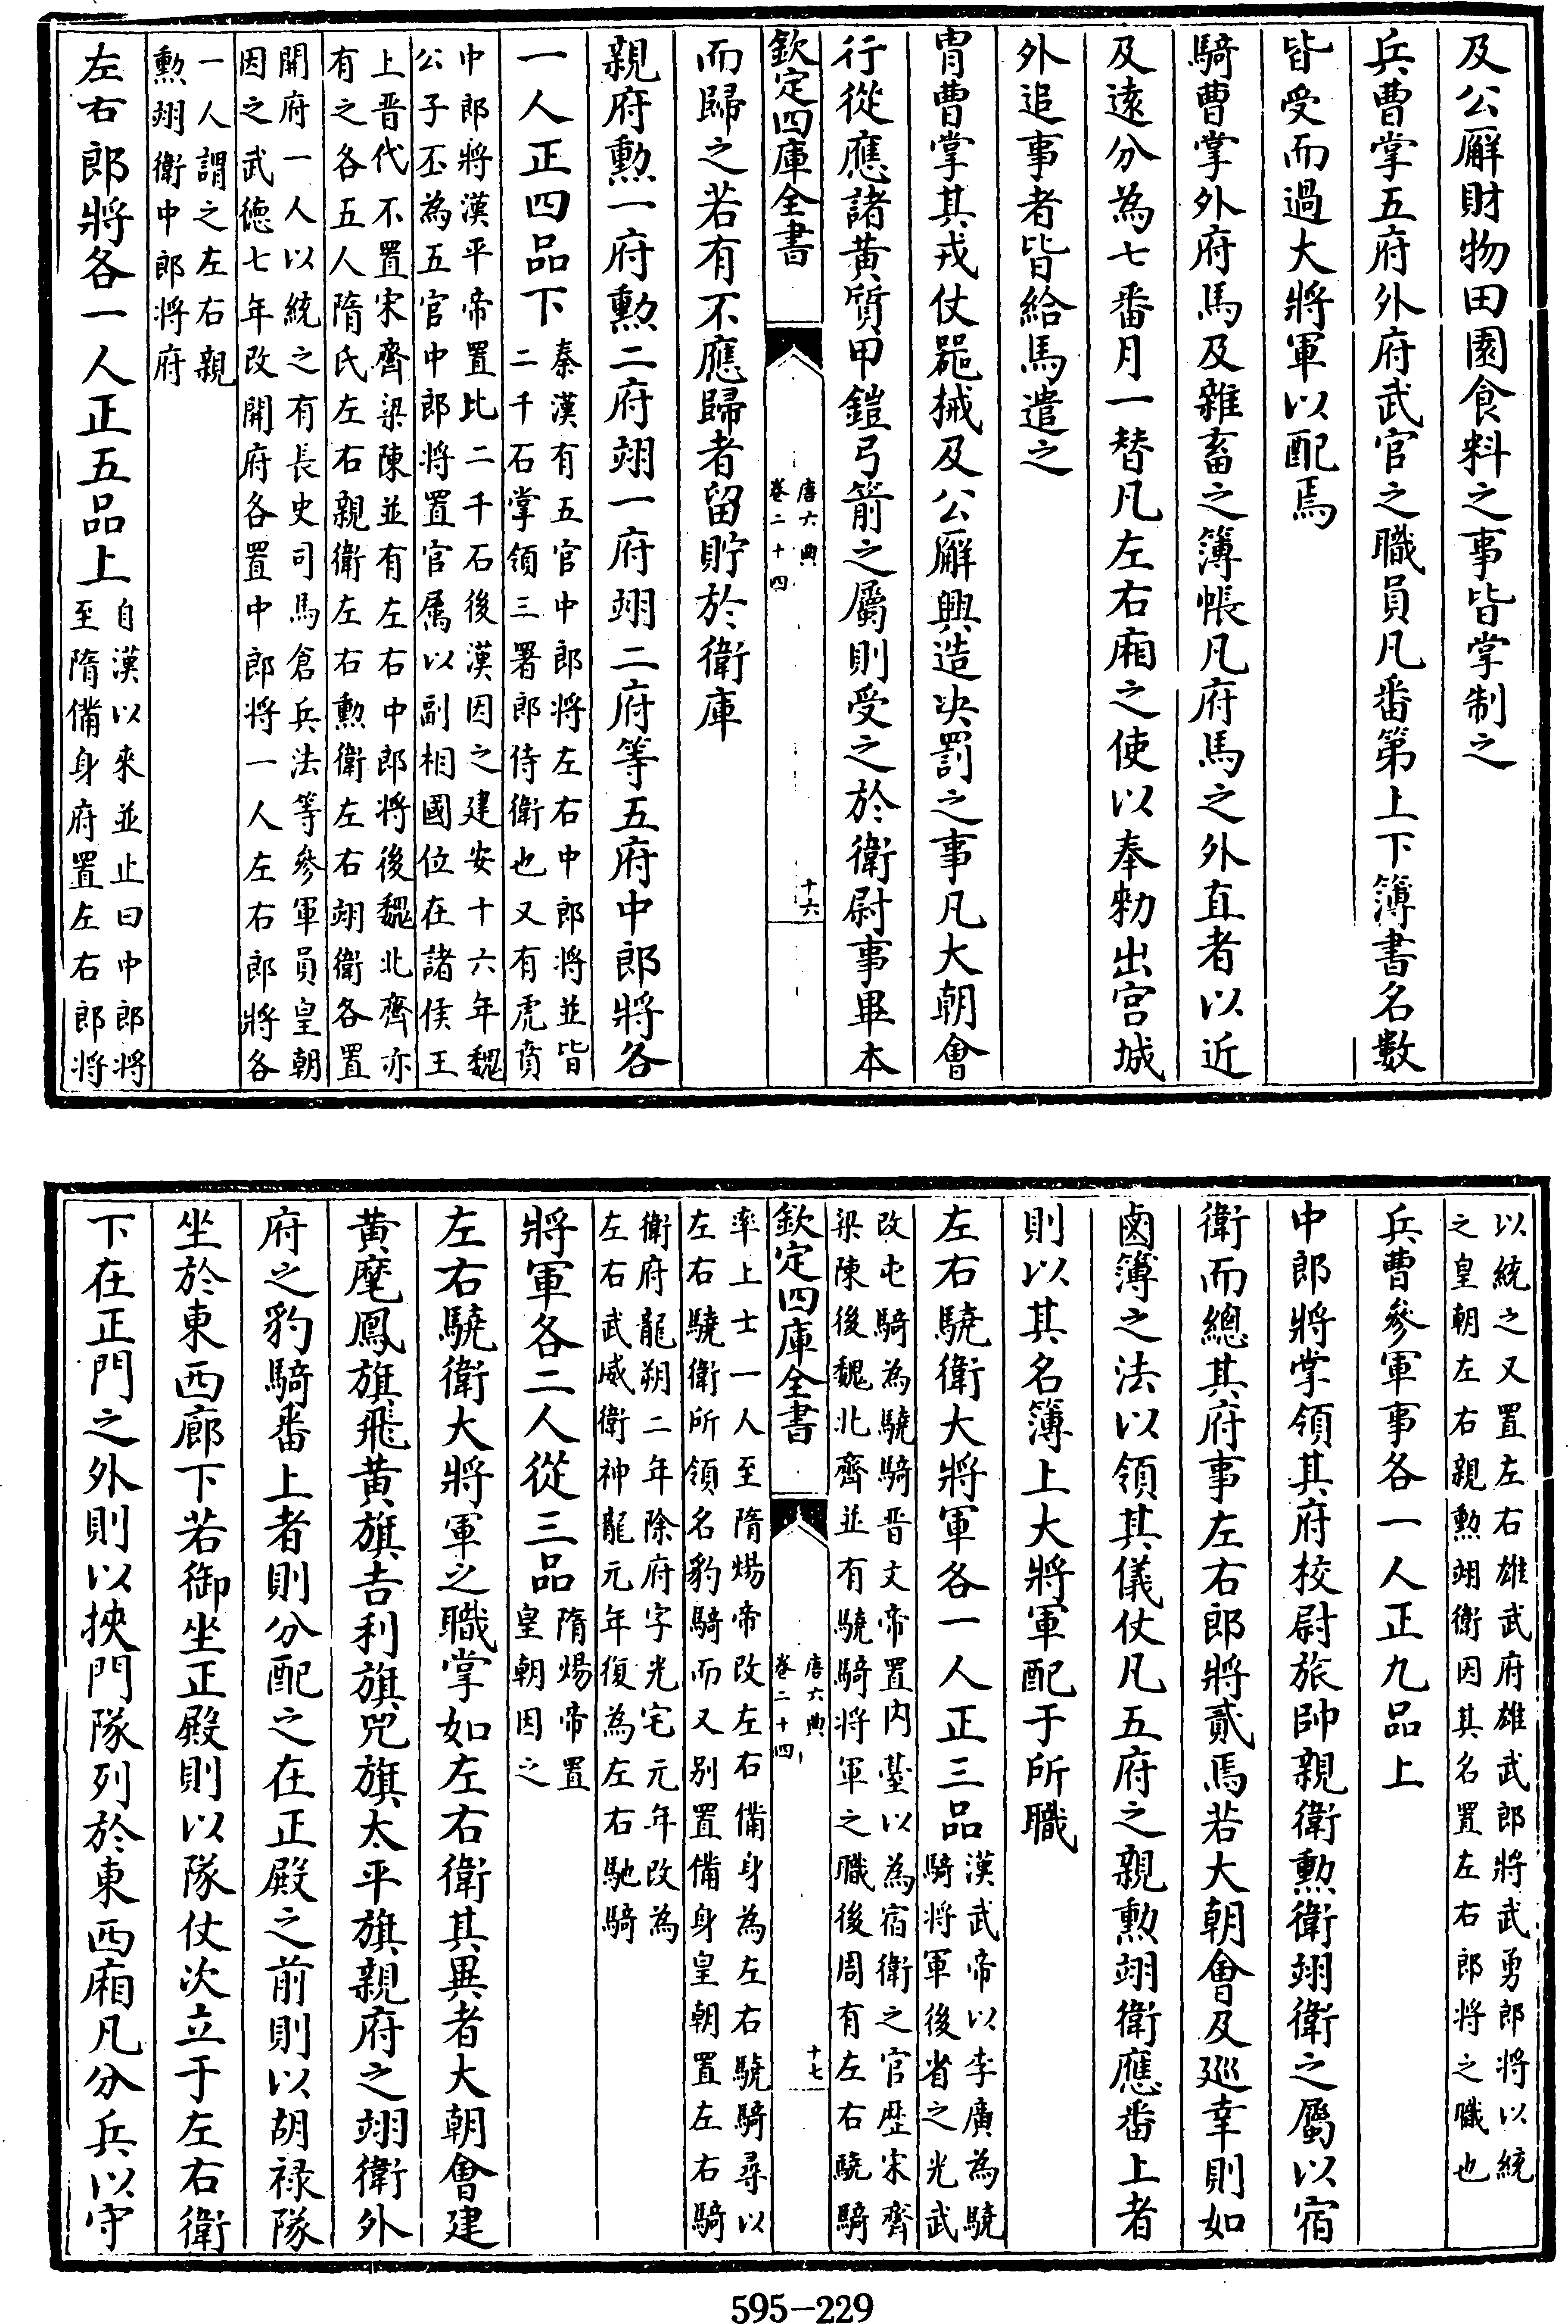 及公廨財物田園食料之事皆掌制之
兵曹掌五府外府武官之職員凡番第上下簿書名數
皆受而過大將軍以配焉
騎曹掌外府馬及雜畜之簿帳凡府馬之外直者以近
及逺分為七番月一替凡左右廂之使以奉勅出宫城
外追事者皆給馬遣之
胄曹掌其戎仗噐械及公廨興造决罰之事凡大朝會
行從應諸黄質甲鎧弓箭之屬則受之於衛尉事畢本
欽定四庫全書
唐六典
卷二十四
十六
而歸之若有不應歸者留貯於衛庫
親府勲一府勲二府翊一府翊二府等五府中郎將各
一人正四品下
秦漢有五官中郎將左右中郎將並皆
二千石掌領三署郎侍衛也又有虎賁
中郎將漢平帝置比二千石後漢因之建安十六年魏
公子丕為五官中郎将置官属以副相國位在諸侯王
上晋代不置宋齊梁陳並有左右中郎將後魏北齊亦
有之各五人隋氏左右親衛左右勲衛左右翊衛各置
開府一人以統之有長史司馬倉兵法等參軍員皇朝
因之武德七年改開府各置中郎將一人左右郎將各
一人謂之左右親
勲翊衛中郎將府
左右郎將各一人正五品上
自漢以來並止曰中郎將
至隋備身府置左右郎將
以統之又置左右雄武府雄武郎將武勇郎將以統
之皇朝左右親勲翊衛因其名置左右郎將之職也
兵曹參軍事各一人正九品上
中郎將掌領其府校尉旅帥親衛勲衛翊衛之屬以宿
衛而總其府事左右郎將貳焉若大朝會及廵幸則如
鹵簿之法以領其儀仗凡五府之親勲翊衛應番上者
則以其名簿上大將軍配于所職
左右驍衛大將軍各一人正三品
漢武帝以李廣為驍
騎將軍後省之光武
改屯騎為驍騎晋文帝置内臺以為宿衛之官歴宋齊
梁陳後魏北齊並有驍騎將軍之職後周有左右驍騎
欽定四庫全書
唐六典
卷二十四
十七
率上士一人至隋煬帝改左右備身為左右驍騎尋以
左右驍衛所領名豹騎而又别置備身皇朝置左右騎
衛府龍朔二年除府字光宅元年改為
左右武威衛神龍元年復為左右馳騎
將軍各二人從三品
隋煬帝置
皇朝因之
左右驍衛大將軍之職掌如左右衛其異者大朝會建
黄麾鳳旗飛黄旗吉利旗兕旗太平旗親府之翊衛外
府之豹騎番上者則分配之在正殿之前則以胡禄隊
坐於東西廊下若御坐正殿則以隊仗次立于左右衛
下在正門之外則以挾門隊列於東西廂凡分兵以守
595-229